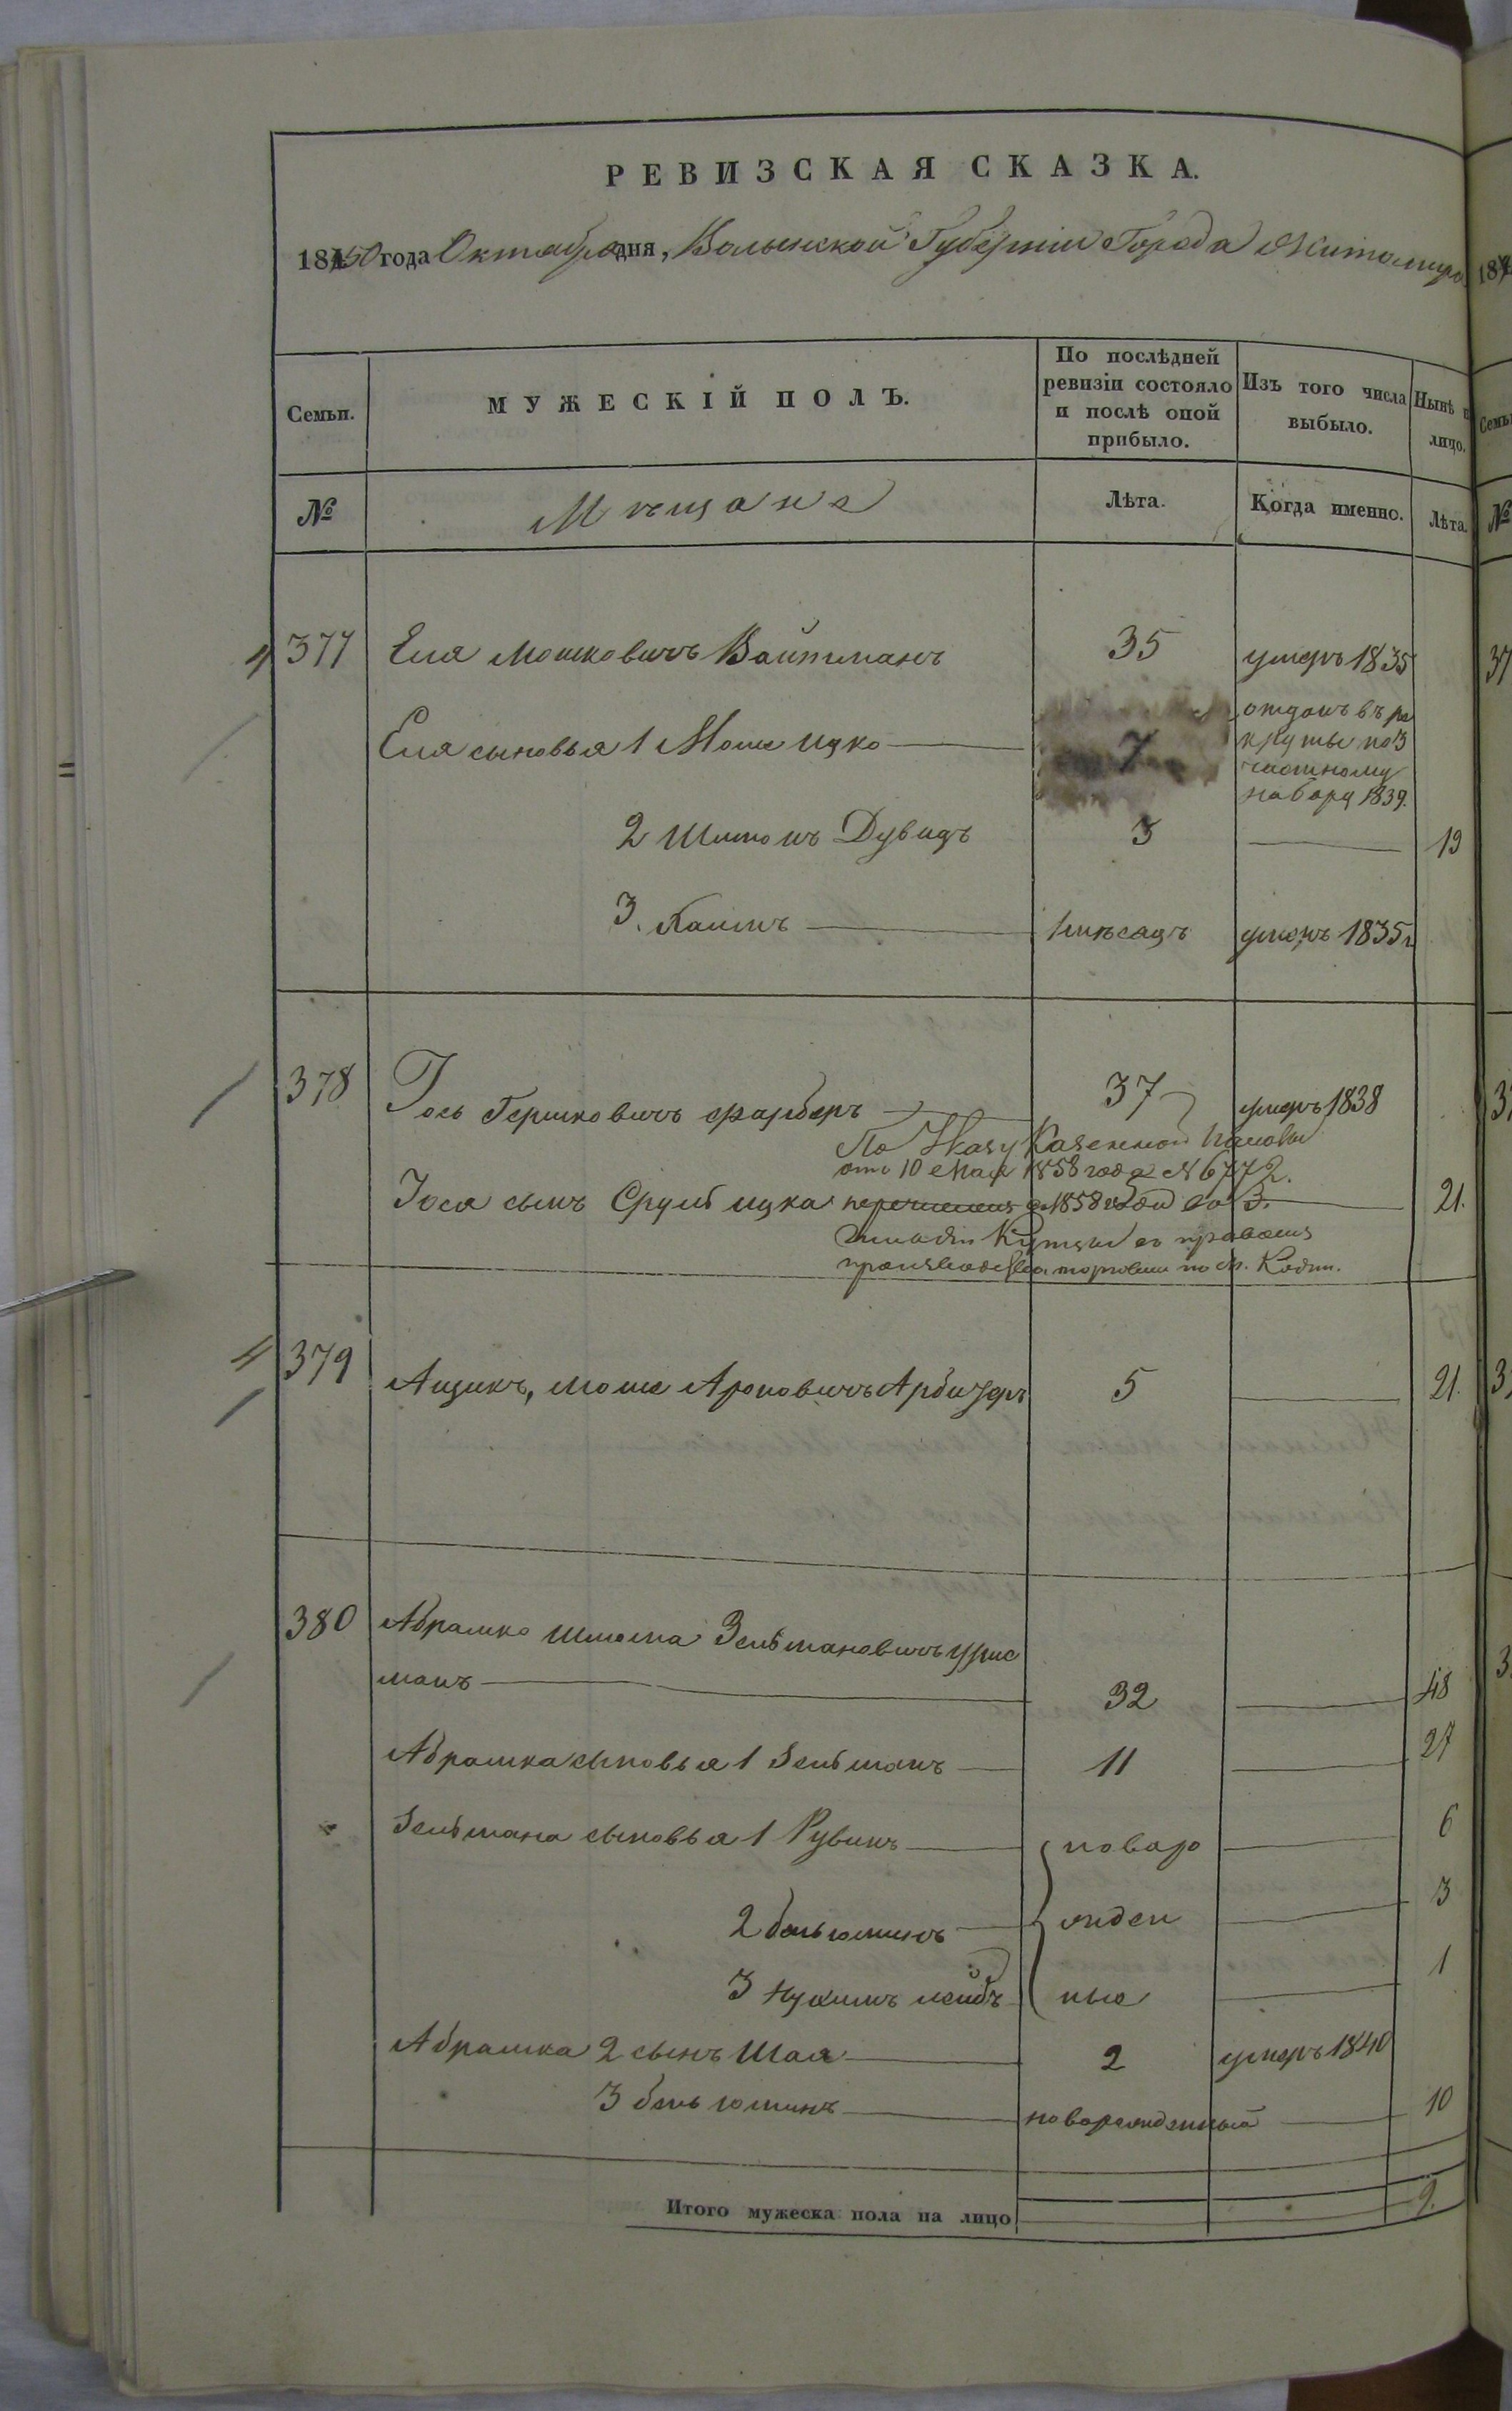 РЕВИЗСКАЯ СКАЗКА.
1850 года Октября дня, Волынской Губерніи Города Житомира
Семьи.
МУЖЕСКІЙ ПОЛЪ.
По послѣдней ревизіи состояло и послѣ оной прибыло.
Изъ того числа выбыло.
Нынѣ
лицо.
№
Мѣщане
Лѣта.
Когда именно.
Лѣта.
377 Еля Мошковичъ Вайтманъ 35 умеръ 1835
Еля сыновья 1 Моше Ицко 7 отданъ въ ре
круты по 3
частному
набору 1839.
2 Шимонъ Дувидъ 3 19
3. Хаимъ 1 мѣсяцъ умеръ 1835 г
378 Іось Гершковичъ Фарберъ 37 умеръ 1838
По Указу Казенной Палаты
отъ 10 Мая 1858 года № 6772.
Іося сынъ Сруль Ицка перечисленъ съ 1858 года во 3. 21.
гильдіи Купцы съ правомъ
производства торговли по м. Кодн.
379 Айзикъ, Моше Ароновичъ Арбитеръ 5 21.
380 Абрамко Шлома Зельмановичъ Урис
манъ 32 48
Абрамка сыновья 1 Зельманъ 11 27
Зельмана сыновья 1 Рувинъ новоро 6
2 беньюминъ жден 3
3 Нухимъ лейбъ ные 1
Абрамка 2 сынъ Шая 2 умеръ 1840
3 беньюминъ новорожденный 10
Итого мужеска пола на лицо 9.